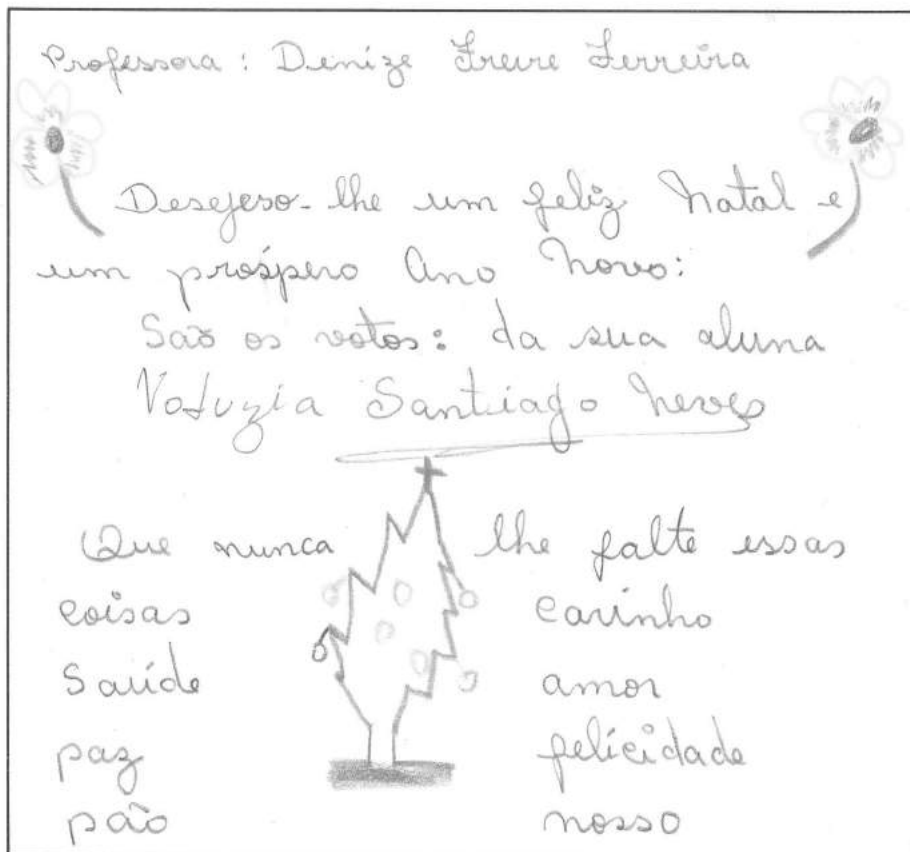 Professora: Denize Freire Ferreira
Desejeso-lhe um feliz Natal e
um próspero Ano Novo:
São os votos: da sua aluna
Voduzia Santiago Neves
Que nunca lhe falte essas
coisas carinho
Saúde amor
paz felicidade
pão nosso